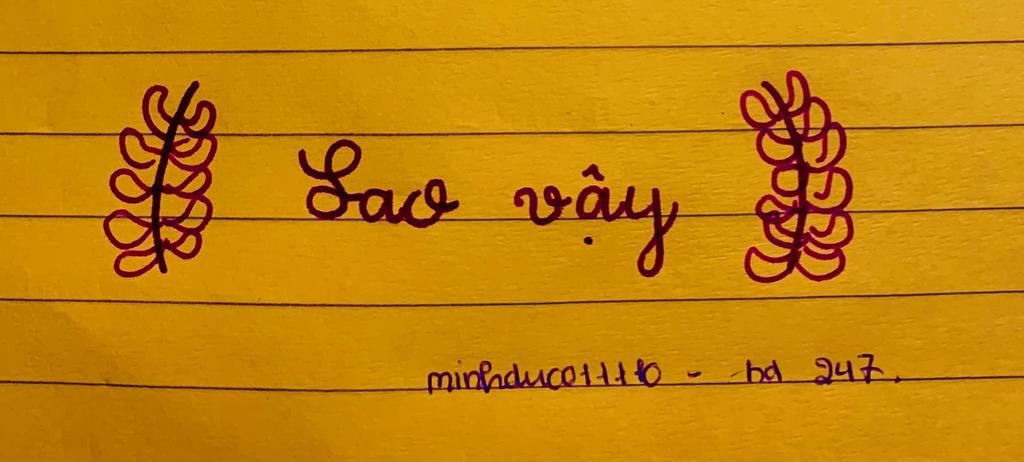 Sao vậy
minhduc01110 - hd 247.